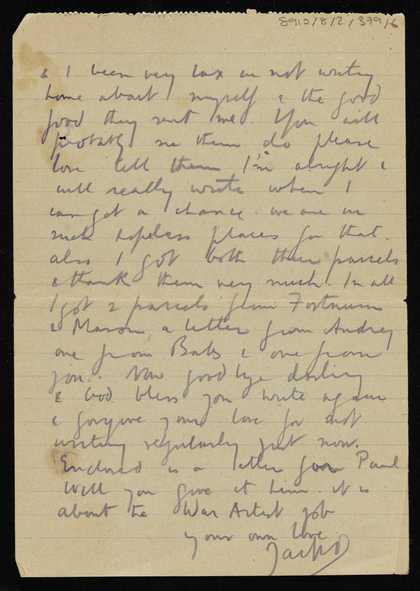 8910/8/2/379/6
& I been very lax in not writing
home about myself & the good
food they sent me. You will
probably see them do please
love tell them I'm alright &
will really write when I
can get a chance. we are in
such hopeless places for that.
also I got both their parcels
& thank them very much. In all
I got 2 parcels from Fortnum
& Mason a letter from Audrey
one from Babs & one from
you. Now goodbye darling
& God bless you write again
& forgive your love for not
writing regularly just now.
Enclosed is a letter for Paul
Will you give it him. it is
about the War Artist job
your own love
Jack